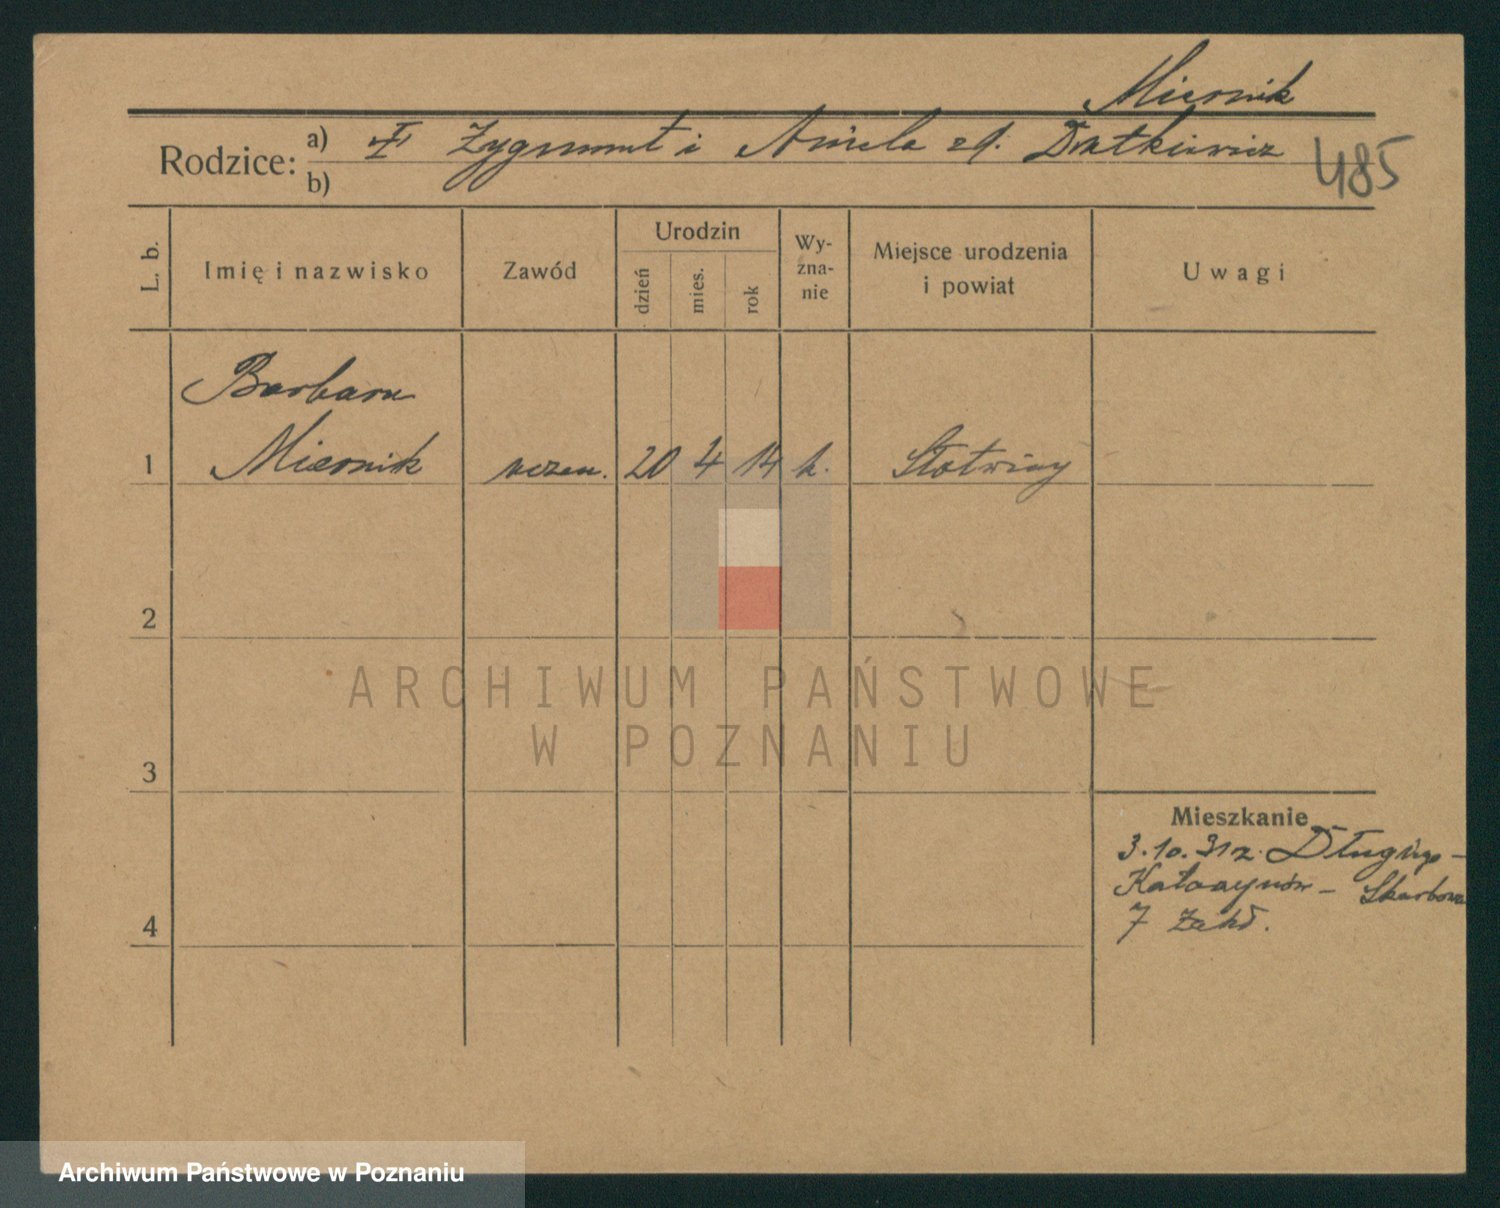 Miernik
Rodzice: a) Zygmunt i Aniela zd. Dratkiewicz
b)
485
L. b.
Imię i nazwisko
Zawód
Urodzin
dzień
mies.
rok
Wy-
zna-
nie
Miejsce urodzenia
i powiat
Uwagi
Barbara
1 Miernik uczen. 20 4 14 k. Słotwiny
2
3
4
Mieszkanie
3.10.31 z
Skarbowa
7
ARCHIWUM PAŃSTWOWE
W POZNANIU
Archiwum Państwowe w Poznaniu